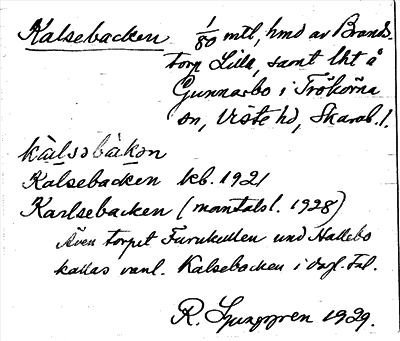 Kalsebacken 1/80 mtl, hmd av Brands-
torp Lilla, samt lht å
Gunnarbo i Trökörna
sn, Viste hd, Skarab. l.
kàlsəbàkən
Kalsebacken kb. 1921
Karlsebacken (mantalsl. 1928)
Även torpet Furukullen und Hallebo
kallas vanl. Kalsebacken i dagl. tal.
R. Ljunggren 1929.